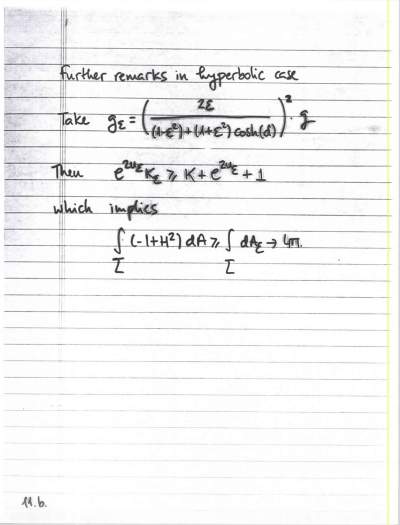 further remarks in hyperbolic case
Take g_ε = (2ε / ((1-ε²)+(1+ε²)cosh(d)))² · g
Then e^{2u_ε} K_ε ≥ K + e^{2u_ε} + 1
which implies
∫_Σ (-1+H²) dA ≥ ∫_Σ dA_ε → 4π.
11.b.